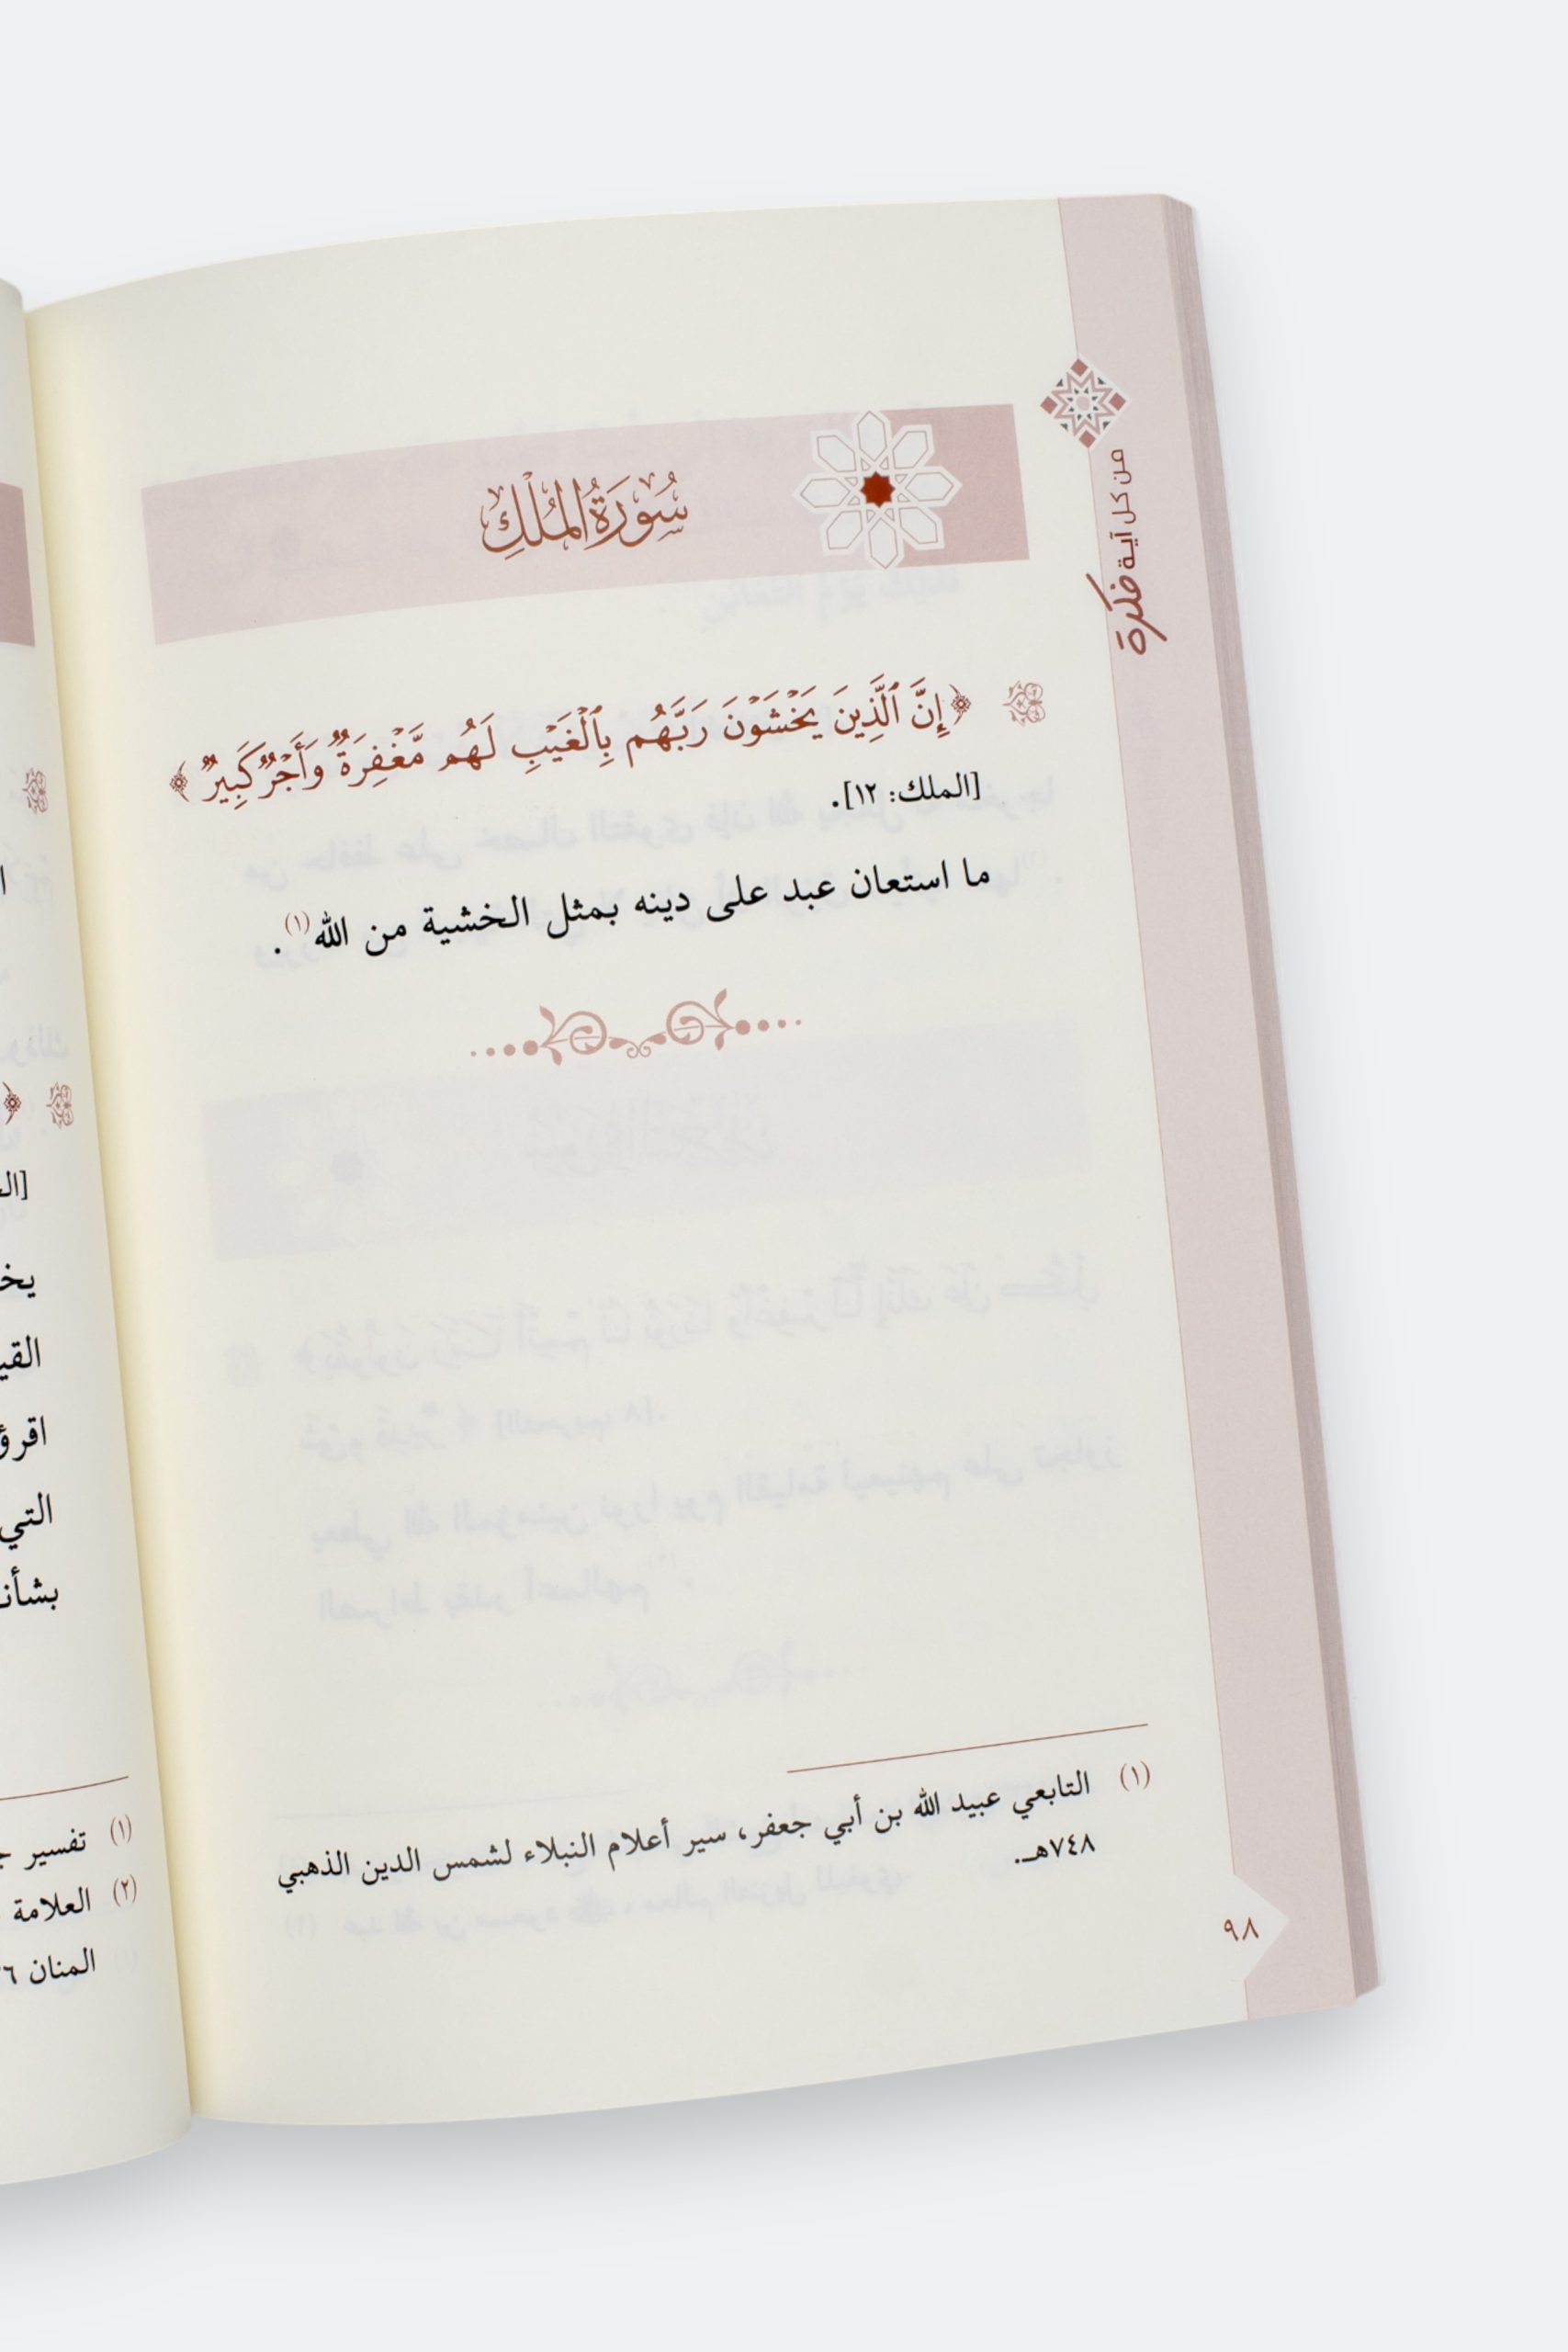 من كل آية
فكرة
سُورَةُ المُلْكِ
﴿إِنَّ ٱلَّذِينَ يَخْشَوْنَ رَبَّهُم بِٱلْغَيْبِ لَهُم مَّغْفِرَةٌ وَأَجْرٌ كَبِيرٌ﴾
[الملك: ١٢].
ما استعان عبد على دينه بمثل الخشية من الله(١).
(١) التابعي عبيد الله بن أبي جعفر، سير أعلام النبلاء لشمس الدين الذهبي
٧٤٨هـ.
٩٨
التي
(١) تفسير
(٢) العلامة
المنان